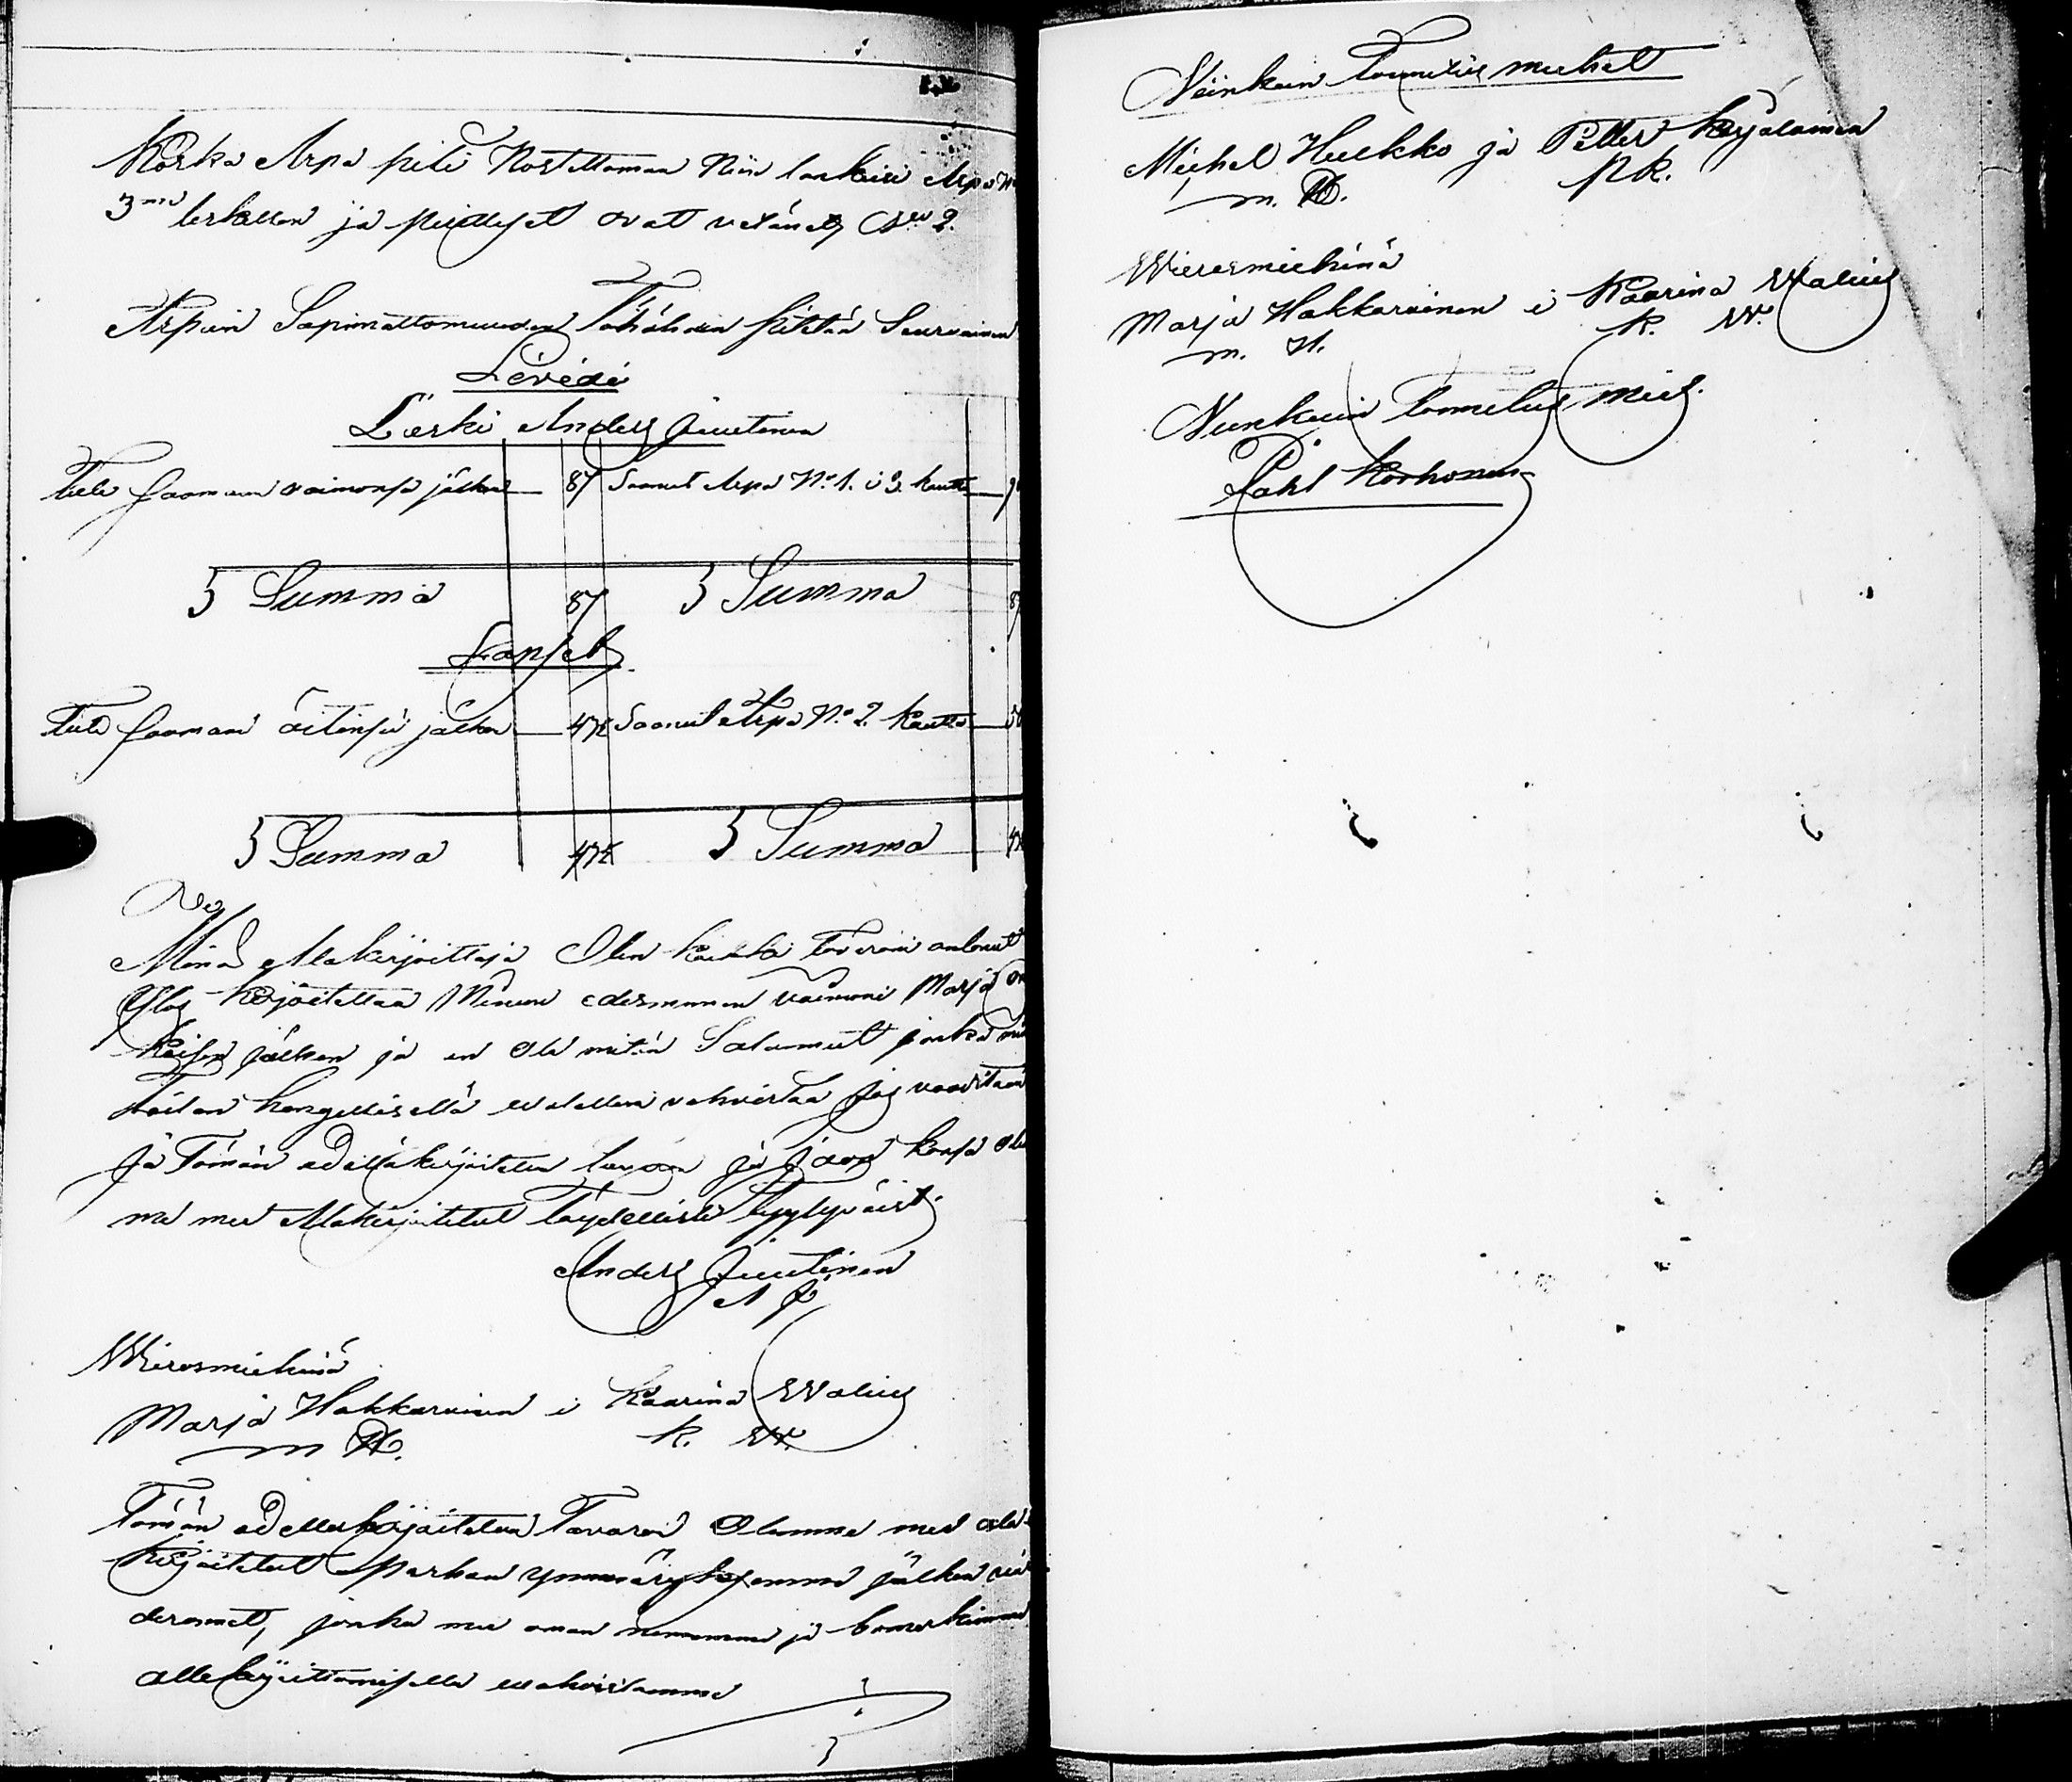 Koska Arpa piti Nostettaman Niin laskiin Arpa
3me leskellen ja puilleset ovat vetänet No 2.
Arpain Sopimattomuuden Tähden pittää Seuraavan
Levidi
Leski Anders Juutinen
Tule saamaan vaimonsa jälken 87 Saanut Arpa No 1. i 3. kautta
Summa 87 Summa 87
Lapset
Tule saamaan äitinsä jälken 47½ Saanut Arpa No 2. kautta
Summa 47½ Summa
Minä Allakirjoittaja Olen kaikki Tavarani andanut
Ylös kirjoitettaa Minun edesmennen vaimoni Marja
jälken ja en ole mitän Salannut jonka
Taitan hengellisellä walallani vahvistaa Jos vaaditaan
Ja Tämän edelläkirjoitetun luvan ja Jaon kansa Olem
me me Allakirjoitetut Täydellisesti Tyytyväiset
Anders Juutinen
A J
Wierasmiehinä
Marja Hakkarainen i Kaarina Walius
M H. K. W.
Tämän edelläkirjoitetun Tavaran Olemme me alla
kirjoitetut Parhan ymmäryksemme jälken
derannet, jonka me oman nimemme ja bomerkimme
allekirjoittamisella wahvistamme
Niinkuin Toimitus miehet
Michel Huckko ja Petter Karjalainen
M. H. P K.
Wierasmiehinä
Marja Hakkarainen i Kaarina Walius
M. H. K. W.
Niinkuin Toimitus Mies.
Påhl Korhonen